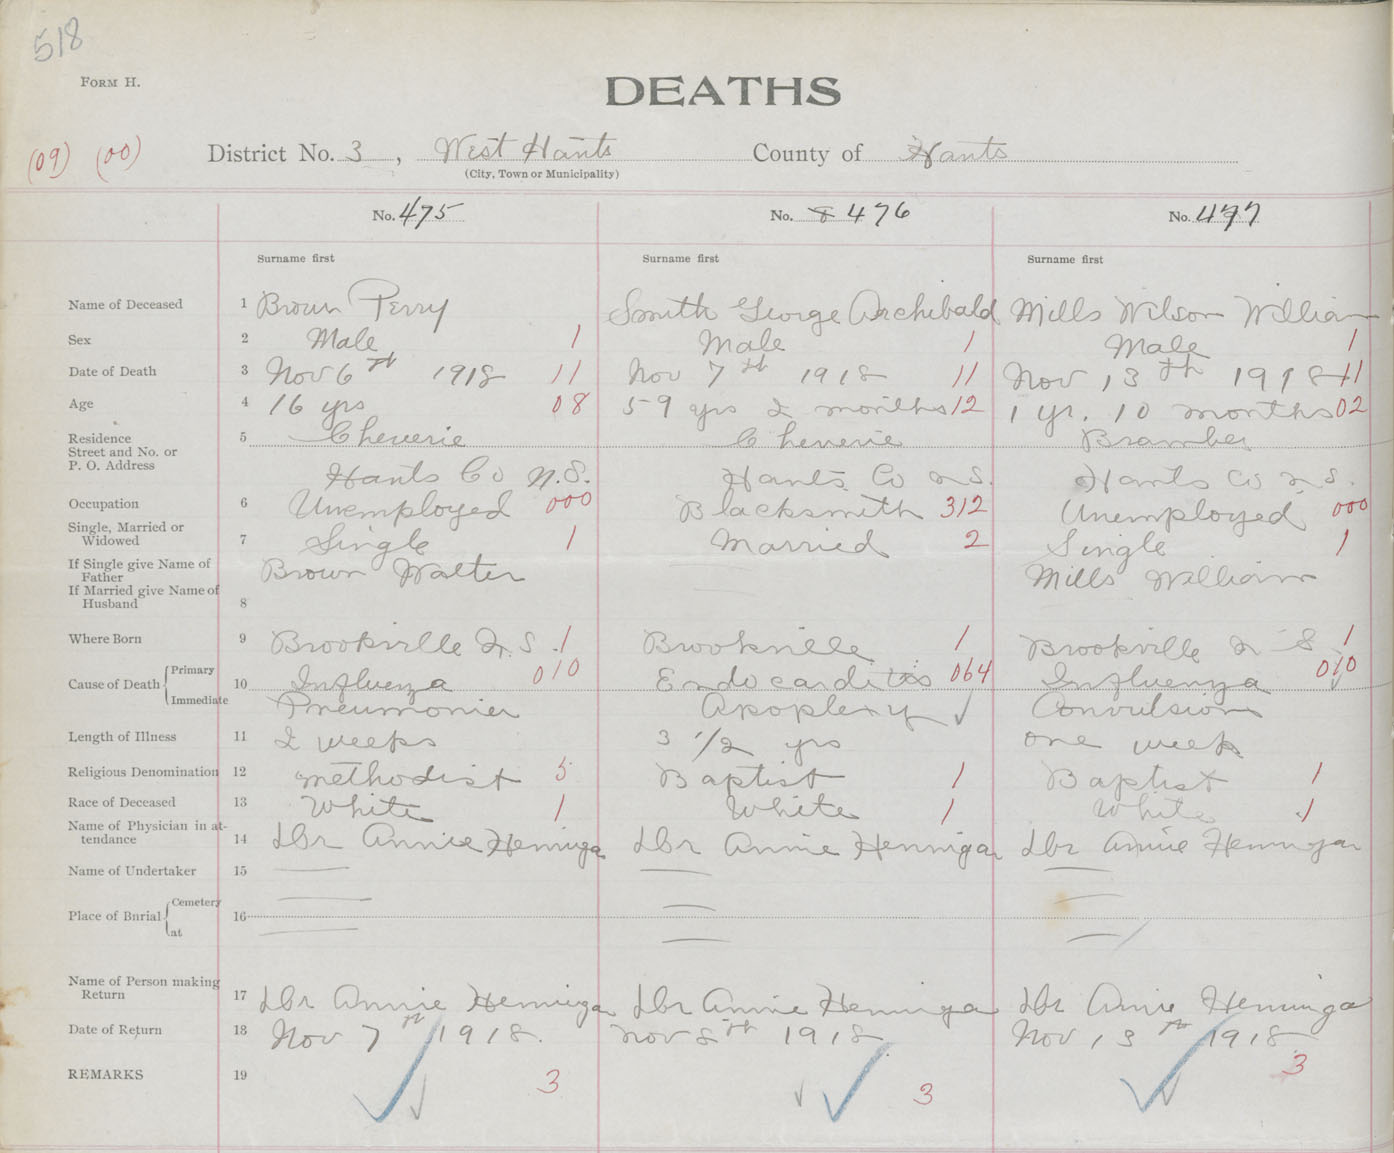 518
FORM H.
DEATHS
(09) (00) District No. 3, West Hants County of Hants
(City, Town or Municipality)
No. 475 No. 476 No. 477
Surname first Surname first Surname first
Name of Deceased 1 Brown Perry Smith George Archibald Mills Wilson William
Sex 2 Male 1 Male 1 Male 1
Date of Death 3 Nov 6th 1918 11 Nov 7th 1918 11 Nov 13th 1918 11
Age 4 16 yrs 08 59 yrs 2 months 12 1 yr. 10 months 02
Residence 5 Cheverie Cheverie Bramber
Street and No. or
P. O. Address Hants Co N.S. Hants Co N S. Hants Co N S.
Occupation 6 Unemployed 000 Blacksmith 312 Unemployed 000
Single, Married or
Widowed 7 Single 1 Married 2 Single 1
If Single give Name of
Father Brown Walter Mills William
If Married give Name of
Husband 8
Where Born 9 Brookville N. S. 1 Brookville 1 Brookville N S 1
Cause of Death { Primary
10 Influenza 010 Endocarditis 064 Influenza 010
Immediate Pneumonier Apoplexy Convulsion
Length of Illness 11 2 weeks 3 1/2 yrs one week
Religious Denomination 12 methodist 5 Baptist 1 Baptist 1
Race of Deceased 13 White 1 White 1 White 1
Name of Physician in at-
tendance 14 Dr Annie Hennigar Dr Annie Hennigar Dr Annie Hennigar
Name of Undertaker 15
Place of Burial { Cemetery
16
at
Name of Person making
Return 17 Dr Annie Hennigar Dr Annie Hennigar Dr Annie Hennigar
Date of Return 18 Nov 7th 1918. Nov 8th 1918 Nov 13th 1918
REMARKS 19 3 3 3